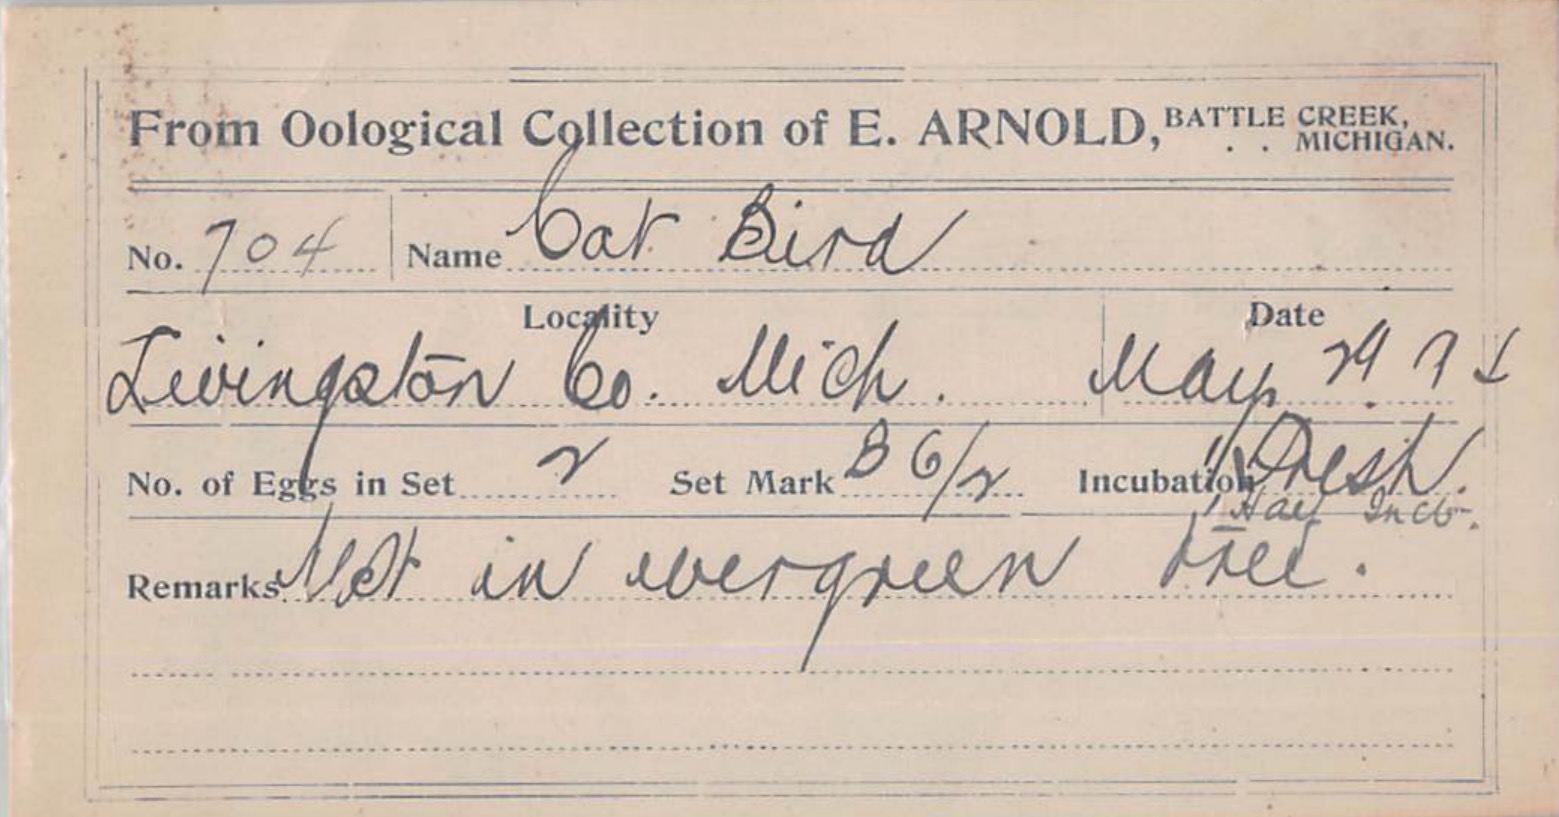 From Oological Collection of E. ARNOLD, BATTLE CREEK, . . MICHIGAN.
No. 704 Name Cat Bird
Locality Date
Livingston Co. Mich. May 29
No. of Eggs in Set 2 Set Mark B 6/2 Incubation Fresh.
Incb-.
Remarks Nest in evergreen tree.